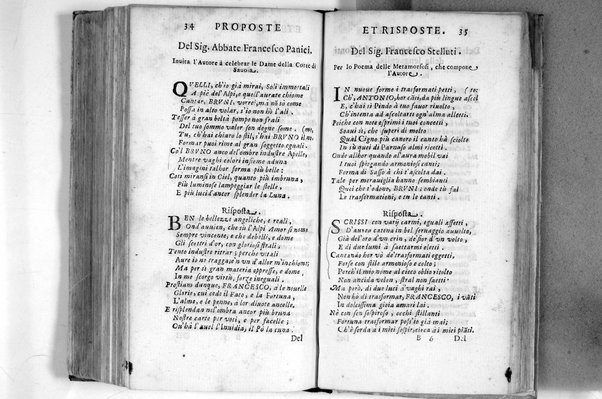 34 PROPOSTE
Del Sig. Abbate Francesco Panici.
Inuita l'Autore à celebrar le Dame della Corte di
Sauoia.
QVELLI, ch'io già mirai, Soli immortali
A piè del'Alpi, e quell'aurate chiome
Cantar, BRVNI, vorrei, ma nò sò come
Possa in alto volar, s'io non hò l'ali.
Tesser à gran beltà pompe non frali
Del tuo sommo valor son degne some.
Tu, c'hai chiaro lo stil, c'hai BRVNO il
Formar puoi rime al gran soggetto eguali.
Co'l BRVNO ancor del'ombre industre Apelle,
Mentre vaghi colori insieme aduna
L'imagini talhor ferma più belle;
Così miransi in Ciel, quanto più imbruna,
Più luminose lampeggiar le stelle,
E più lucid'ancor splender la Luna.
Risposta.
BEN le bellezze angeliche, e reali,
Ond'auuien, che sù l'Alpi Amor si nome
Sempre vincente, e che debelli, e dome
Gli scettri d'or, con gloriosi strali
Tento industre ritrar; perche vitali
Aure io ne traggà o vn d'allor m'inchiomi;
Ma per sì gran materia oppresse, e dome,
In me scorgo virtù, forze ineguali.
Prestiam dunque, FRANCESCO, à le nouelle
Glorie, cui cede il Fato, e la Fortuna,
L'alme, e le penne, à lor diuote ancelle,
E risplendan nel'ombra ancor più bruna
Nostre carte per voti, e per facelle;
On'hà l'auel l'Inuidia, il Pò la cuna.
Del
ET RISPOSTE. 35
Del Sig. Francesco Stelluti.
Per lo Poema delle Metamorfosi, che compone
l'Autore.
IN nuoue forme i trasformati petti,
Ch', ANTONIO, her cāti, da più lingue ascol
E, c'hai sì Pindo à tuo fauor riuolto,
Ch'intenta ad ascoltarti ogn'alma alletti.
Poiche con note esprimi i tuoi concetti
Soaui sì, che superi di molto
Qual Cigno più canoro il canto hà sciolto
In sù quei di Parnaso almi ricetti.
Onde allhor quando al'aura mobil vai
I tuoi spiegando armoniosi carmi
Forma di Sasso à chi t'ascolta dai.
Tale per merauiglia hanno sembianti
Quei che t'odono, BRVNI; onde tù fai
Le trasformationi, e tu le canti.
Risposta.
SCRISSI con varij carmi, eguali affetti,
D'aurea catena in bel seruaggio auuolto,
Già del'oro d'vn crin, de' fior d'vn volto,
E di due lumi à saettarmi eletti;
Cantando hor vò de'trasformati oggetti,
Forse con stile armonioso e colto;
Perch'il mio nome al cieco oblio ritolto
Non ancida veleno, stral non saetti
Ma però, di duo luci à' vaghi rai,
Non hò di trasformar, FRANCESCO, i vāti
In dolcissima gioia amari lai.
Nè con sen sospiroso, occhi stillanti
Fortuna trasformar poss'io già mai;
Ch'è sorda à i miei sospiri, cieca à i miei piāti.
B 6 Del